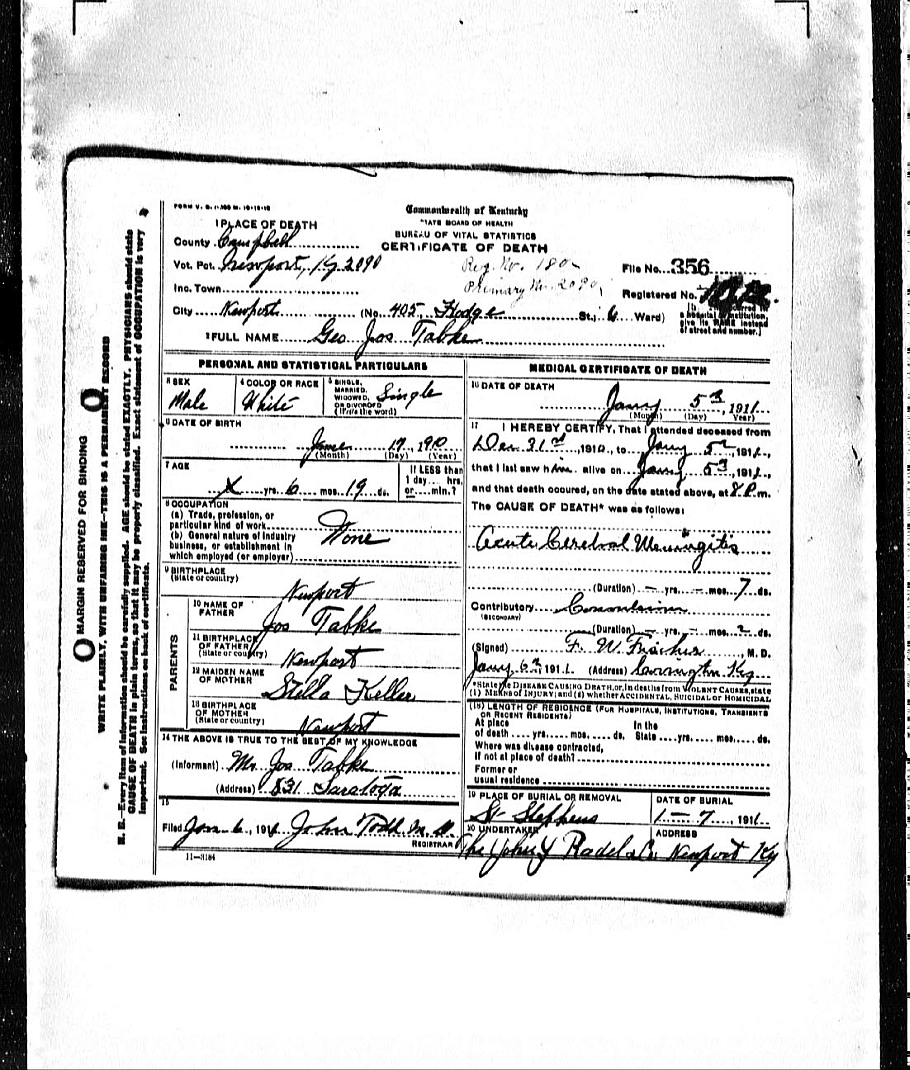 FORM V. S.
Commonwealth of Kentucky
STATE BOARD OF HEALTH
BUREAU OF VITAL STATISTICS
CERTIFICATE OF DEATH
1 PLACE OF DEATH
County Campbell
Vot. Pct. Newport, Ky 2090
Inc. Town
City Newport (No. 405, Hodge St., 6 Ward)
Reg. No. 180
Primary No. 2090
File No. 356
Registered No.
give its NAME instead
of street and number.]
2 FULL NAME Geo Jos Tabke
PERSONAL AND STATISTICAL PARTICULARS
3 SEX
Male
4 COLOR OR RACE
White
5 SINGLE,
MARRIED,
WIDOWED,
OR DIVORCED
(Write the word)
Single
6 DATE OF BIRTH
June 17, 1910
(Month) (Day) (Year)
7 AGE
X yrs. 6 mos. 19 ds.
If LESS than
1 day.... hrs.
or.... min.?
8 OCCUPATION
(a) Trade, profession, or
particular kind of work
(b) General nature of industry
business, or establishment in
which employed (or employer)
None
9 BIRTHPLACE
(State or country)
Newport
PARENTS
10 NAME OF
FATHER
Jos Tabke
11 BIRTHPLACE
OF FATHER
(State or country)
Newport
12 MAIDEN NAME
OF MOTHER
Stella Keller
13 BIRTHPLACE
OF MOTHER
(State or country)
Newport
14 THE ABOVE IS TRUE TO THE BEST OF MY KNOWLEDGE
(Informant) Mr. Jos Tabke
(Address) 831 Saratoga
15
Filed Jan 6, 1911 John Todd M. D.
REGISTRAR
11-3184
MEDICAL CERTIFICATE OF DEATH
16 DATE OF DEATH
Jany 5, 1911
(Month) (Day) (Year)
17 I HEREBY CERTIFY, That I attended deceased from
Dec 31st, 1910, to Jany 5, 1911,
that I last saw him alive on Jany 5, 1911,
and that death occured, on the date stated above, at 8 P. m.
The CAUSE OF DEATH* was as follows:
Acute Cerebral Meningitis
(Duration) — yrs. — mos. 7 ds.
Contributory
(SECONDARY)
(Duration) — yrs. — mos. 2 ds.
(Signed) F. W. Fischer, M. D.
Jany 6, 1911 (Address) Covington Ky
*State the DISEASE CAUSING DEATH, or, in deaths from VIOLENT CAUSES, state
(1) MEANS OF INJURY; and (2) whether ACCIDENTAL, SUICIDAL OR HOMICIDAL
(18) LENGTH OF RESIDENCE (FOR HOSPITALS, INSTITUTIONS, TRANSIENTS
OR RECENT RESIDENTS)
At place
of death.... yrs. .... mos. .... ds.
In the
State.... yrs. .... mos. .... ds.
Where was disease contracted,
if not at place of death?
Former or
usual residence
19 PLACE OF BURIAL OR REMOVAL
St Stephens
DATE OF BURIAL
1-7, 1911.
20 UNDERTAKER
The John J Radel Co.
ADDRESS
Newport Ky
MARGIN RESERVED FOR BINDING
WRITE PLAINLY, WITH UNFADING INK—THIS IS A PERMANENT RECORD
N. B.—Every item of information should be carefully supplied. AGE should be stated EXACTLY. PHYSICIANS should state
CAUSE OF DEATH in plain terms, so that it may be properly classified. Exact statement of OCCUPATION is very
important. See instructions on back of certificate.